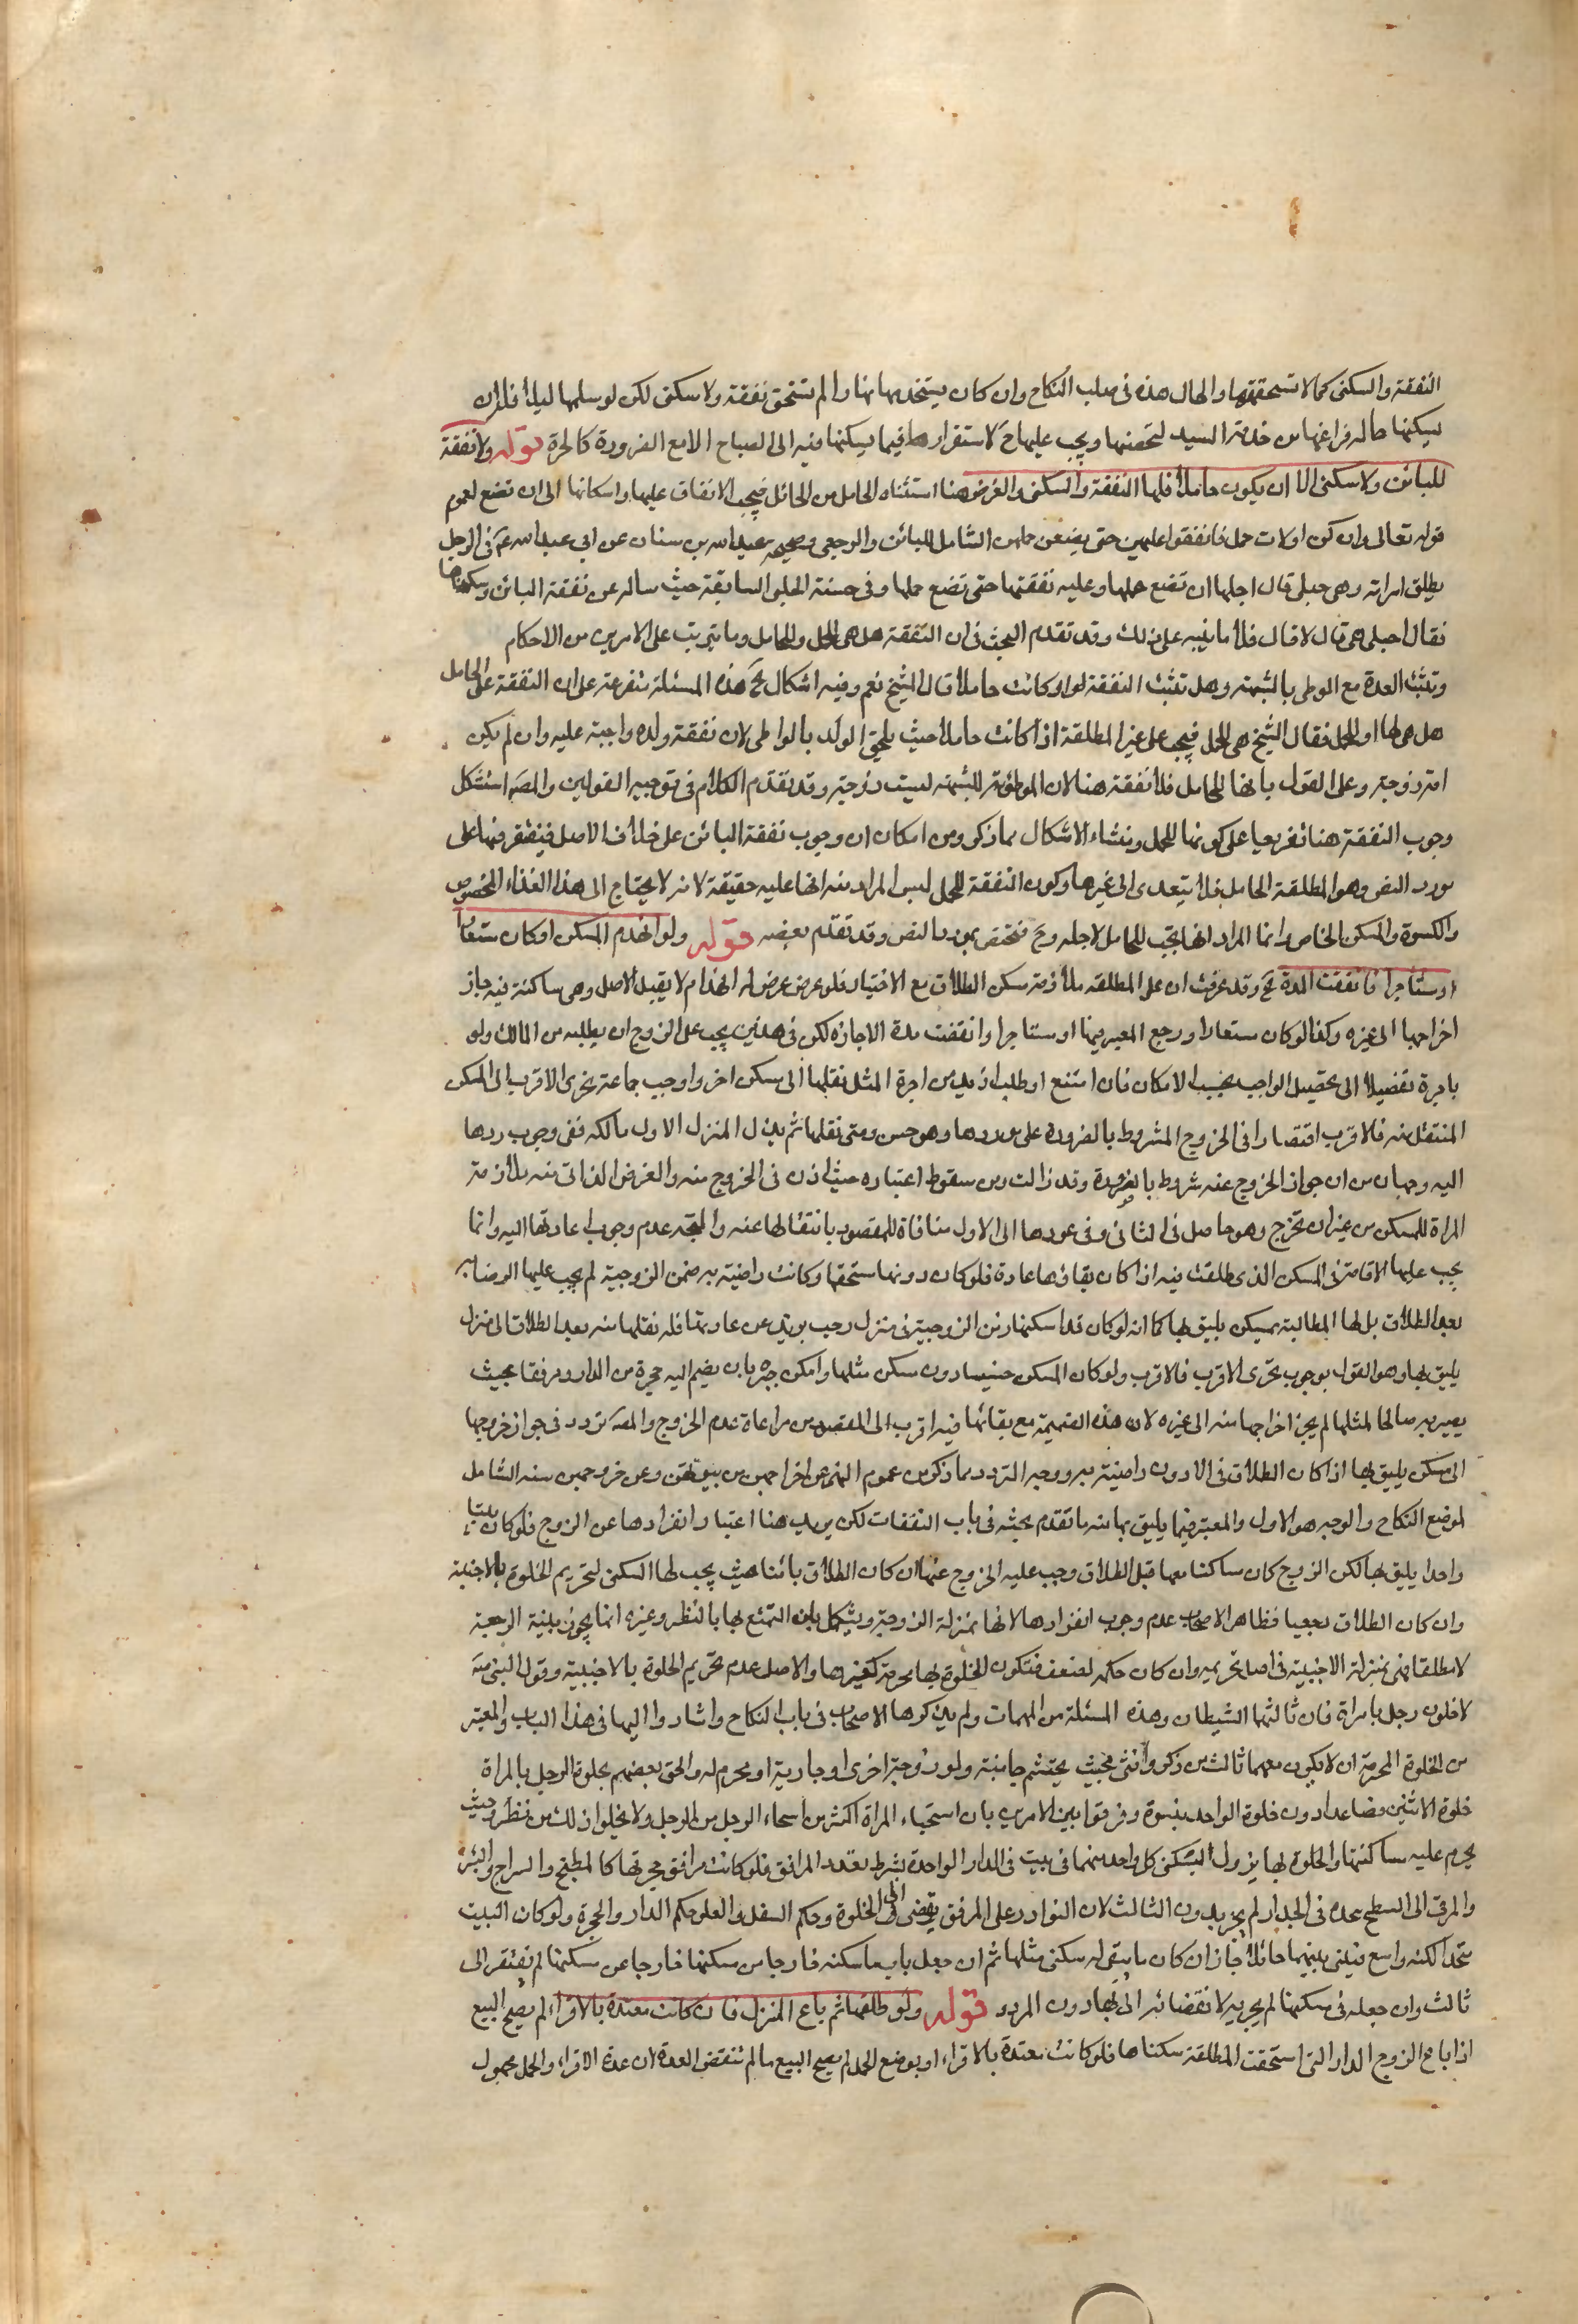 النفقة والسكنى كما لا تستحقهما والحال هذه في صلب النكاح وان كان يستخدمها نهارا لم تستحق نفقة ولا سكنى لكن لو سلمها ليلا فله ان
يسكنها حالة فراغها من خدمة السيد لتحصنها ويجب عليها ح الاستقرار فيما يسكنها فيه الى الصباح الا مع الضرورة كالحرة قوله ولا نفقة
للبائن ولا سكنى الا ان يكون حاملا فلها النفقة والسكنى والغرض هنا استثناء الحامل من الحائل فيجب الانفاق عليها واسكانها الى ان تضع لعموم
قوله تعالى وان كن اولات حمل فانفقوا عليهن حتى يضعن حملهن الشامل للبائن والرجعي وصحيحة عبد الله بن سنان عن ابي عبد الله ع في الرجل
يطلق امراته وهي حبلى قال اجلها ان تضع حملها وعليه نفقتها حتى تضع حملها وفي حسنة الحلبي السابقة حيث ساله عن نفقة البائن وسكناها
فقال احبلى هي قال لا قال فلا ما ينبه على ذلك وقد تقدم البحث في ان النفقة هل هي للحمل او للحامل وما يترتب على الامرين من الاحكام
وتثبت العدة مع الوطى بالشبهة وهل تثبت النفقة لو كانت حاملا قال الشيخ نعم وفيه اشكال هذه المسئلة متفرعة على ان النفقة على الحامل
هل هي لها او للحمل فقال الشيخ هي للحمل فيجب على غير المطلقة اذا كانت حاملا حيث يلحق الولد بالواطي لان نفقة ولده واجبة عليه وان لم يكن
امه زوجة وعلى القول بانها للحامل فلا نفقة هنا لان الموطوئة للشبهة ليست زوجة وقد تقدم الكلام في توجيه القولين والمص استشكل
وجوب النفقة هنا تفريعا على كونها للحمل ومنشاء الاشكال مما ذكر ومن امكان ان وجوب نفقة البائن على خلاف الاصل فيقتصر فيها على
مورد النص وهو المطلقة الحامل فلا يتعدى الى غيرها وكون النفقة للحمل ليس المراد منه انها عليه حقيقة لانه لا يحتاج الى هذا الغذاء المخصوص
والكسوة والمسكن الخاص وانما المراد انها تجب للحامل لاجله وح فتختص بمورد النص وقد تقدم بعضه قوله ولو انهدم المسكن او كان مستعارا
او مستاجرا فانقضت المدة وقد عرفت ان على المطلقة ملازمة مسكن الطلاق مع الاختيار فلو عرض له انهدام لا يقبل الاصلاح وهي ساكنة فيه جاز
اخراجها الى غيره وكذا لو كان مستعارا ورجع المعير فيها او مستاجرا وانقضت مدة الاجارة لكن في هذين يجب على الزوج ان يطلبه من المالك ولو
باجرة تفصيلا الى تحصيل الواجب بحسب الامكان فان امتنع او طلب ازيد من اجرة المثل نقلها الى مسكن اخر واوجب جماعة تحري الاقرب الى المسكن
المنتقل منه فالاقرب اقتصارا في الخروج المشروط بالضرورة على موردها وهو حسن ومتى نقلها ثم بذل المنزل الاول مالكه ففي وجوب ردها
اليه وجهان من ان جواز الخروج عنه مشروط بالضرورة وقد زالت ومن سقوط اعتباره حيث اذن في الخروج منه والغرض الذاتي منه ملازمة
المراة للمسكن من غير ان تخرج وهو حاصل في الثاني وفي عودها الى الاول منافاة للمقصود بانتقالها عنه والمتجه عدم وجوب اعادتها اليه وانما
يجب عليها الاقامة في المسكن الذي طلقت فيه اذا كان بقاؤها عادة فلو كان دونها مستحقها وكانت راضية به ضمن الزوجية لم يجب عليها الرضا به
بعد الطلاق بل لها المطالبة بمسكن يليق بها كما انه لو كان قد اسكنها زمن الزوجية في منزل رحب يزيد عن عادتها فله نقلها منه بعد الطلاق الى منزل
يليق بها وهو القول بوجوب تحرى الاقرب فالاقرب ولو كان المسكن خسيسا دون مسكن مثلها وامكن جبره بان يضم اليه حجرة من الدار ومرفقا بحيث
يصير به صالحا لمثلها لم يجز اخراجها منه الى غيره لان هذه الضميمة مع بقائها فيه اقرب الى المقصود من مراعاة عدم الخروج والمص تردد في جواز خروجها
الى مسكن يليق بها اذا كان الطلاق في الادون راضية به ووجه التردد مما ذكر من عموم النهي عن اخراجهن من بيوتهن وعن خروجهن منه الشامل
لموضع النكاح والوجه هو الاول والمعتبر فيما يليق بها منه ما تقدم بحثه في باب النفقات لكن يزيد هنا اعتبار انفرادها عن الزوج فلو كان بيتا
واحدا يليق بها لكن الزوج كان ساكنا معها قبل الطلاق وجب عليه الخروج عنها ان كان الطلاق بائنا حيث يجب لها السكنى لتحريم الخلوة بالاجنبية
وان كان الطلاق رجعيا فظاهر الاصحاب عدم وجوب انفرادها لانها بمنزلة الزوجة ويشكل بان التمتع بها بالنظر وغيره انما يجوز بنية الرجعية
لا مطلقا فهي بمنزلة الاجنبية في اصل تحريمه وان كان حكمه لضعف فتكون الخلوة بها محرمة كغيرها والاصل عدم تحريم الخلوة بالاجنبية وقول النبي ص
لا خلون رجل بامراة فان ثالثهما الشيطان وهذه المسئلة من المهمات ولم يذكرها الاصحاب في باب النكاح واشاروا اليها في هذا الباب والمعتبر
من الخلوة المحرمة ان لا يكون معهما ثالث من ذكر وانثى بحيث يحتشم جانبه ولو زوجة اخرى او جارية او محرم له والحق بعضهم بخلوة الرجل بالمراة
خلوة الاثنين فصاعدا دون خلوة الواحد بنسوة وفرقوا بين الامرين بان استحياء المراة اكثر من استحياء الرجل من الرجل ولا يخلوا ذلك من نظر وحيث
يحرم عليه مساكنتها والخلوة بها يزول السكنى كل واحد منهما في بيت في الدار الواحدة بشرط تعدد المرافق فلو كانت مرافق حجرتها كالمطبخ والمراح والبئر
والمرقى الى السطح متحده في الجدار لم يجز بدون الثالث لان التوارد على المرفق يفضى الى الخلوة وحكم السفل والعلو حكم الدار والحجرة ولو كان البيت
متحدا لكنه واسع فبنى بينهما حائلا جاز ان كان ما يبقى له سكنى مثلها ثم ان جعل باب ما سكنه خارجا من مسكنها خارجا عن مسكنها لم يفتقر الى
ثالث وان جعله في مسكنها لم يجز به لافضائه الى بها دون المرور قوله ولو طلقها ثم باع المنزل فان كانت معتدة بالاقراء لم يصح البيع
اذا باع الزوج الدار التي استحقت المطلقة سكناها فلو كانت معتدة بالاقراء او بوضع الحمل لم يصح البيع ما لم تنقض العدة لان عدة الاقراء والحمل مجهول